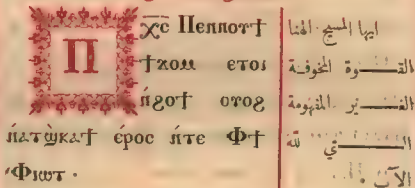 Ⲡⲭ̅ⲥ̅ Ⲡⲉⲛⲛⲟⲩϯ
ϯϫⲟⲙ ⲉⲧⲟⲓ
ⲛ̀ϩⲟϯ ⲟⲩⲟϩ
ⲛⲁⲧϣ̀ⲕⲁϯ ⲉ̀ⲣⲟⲥ ⲛ̀ⲧⲉ Ⲫϯ
Ⲫⲓⲱⲧ ·
ايها المسيح الهنا
القـــوة المخوفة
الغـــير المفهومة
الـــتي لله
الآب